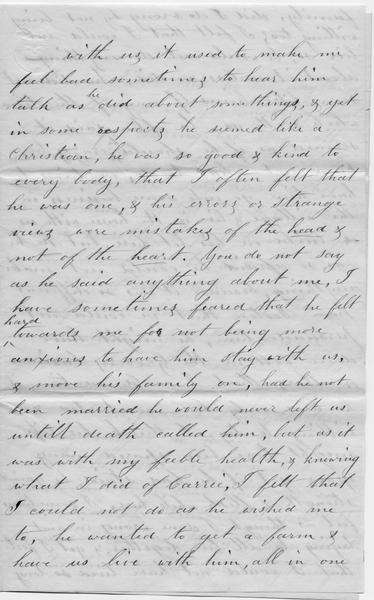 with us, it used to make me
feel bad sometimes to hear him
talk as he did about somethings, & yet
in some respects he seemed like a
Christian, he was so good & kind to
every body, that I often felt that
he was one, & his errors or strange
views were mistakes of the head &
not of the heart. You do not say
as he said anything about me, I
have sometimes feared that he felt
hard
towards me for not being more
anxious to have him stay with us,
& move his family on, had he not
been married he would never left us
untill death called him, but as it
was with my feeble health, & knowing
what I did of Carrie, I felt that
I could not do as he wished me
to, he wanted to get a farm &
have us live with him, all in one